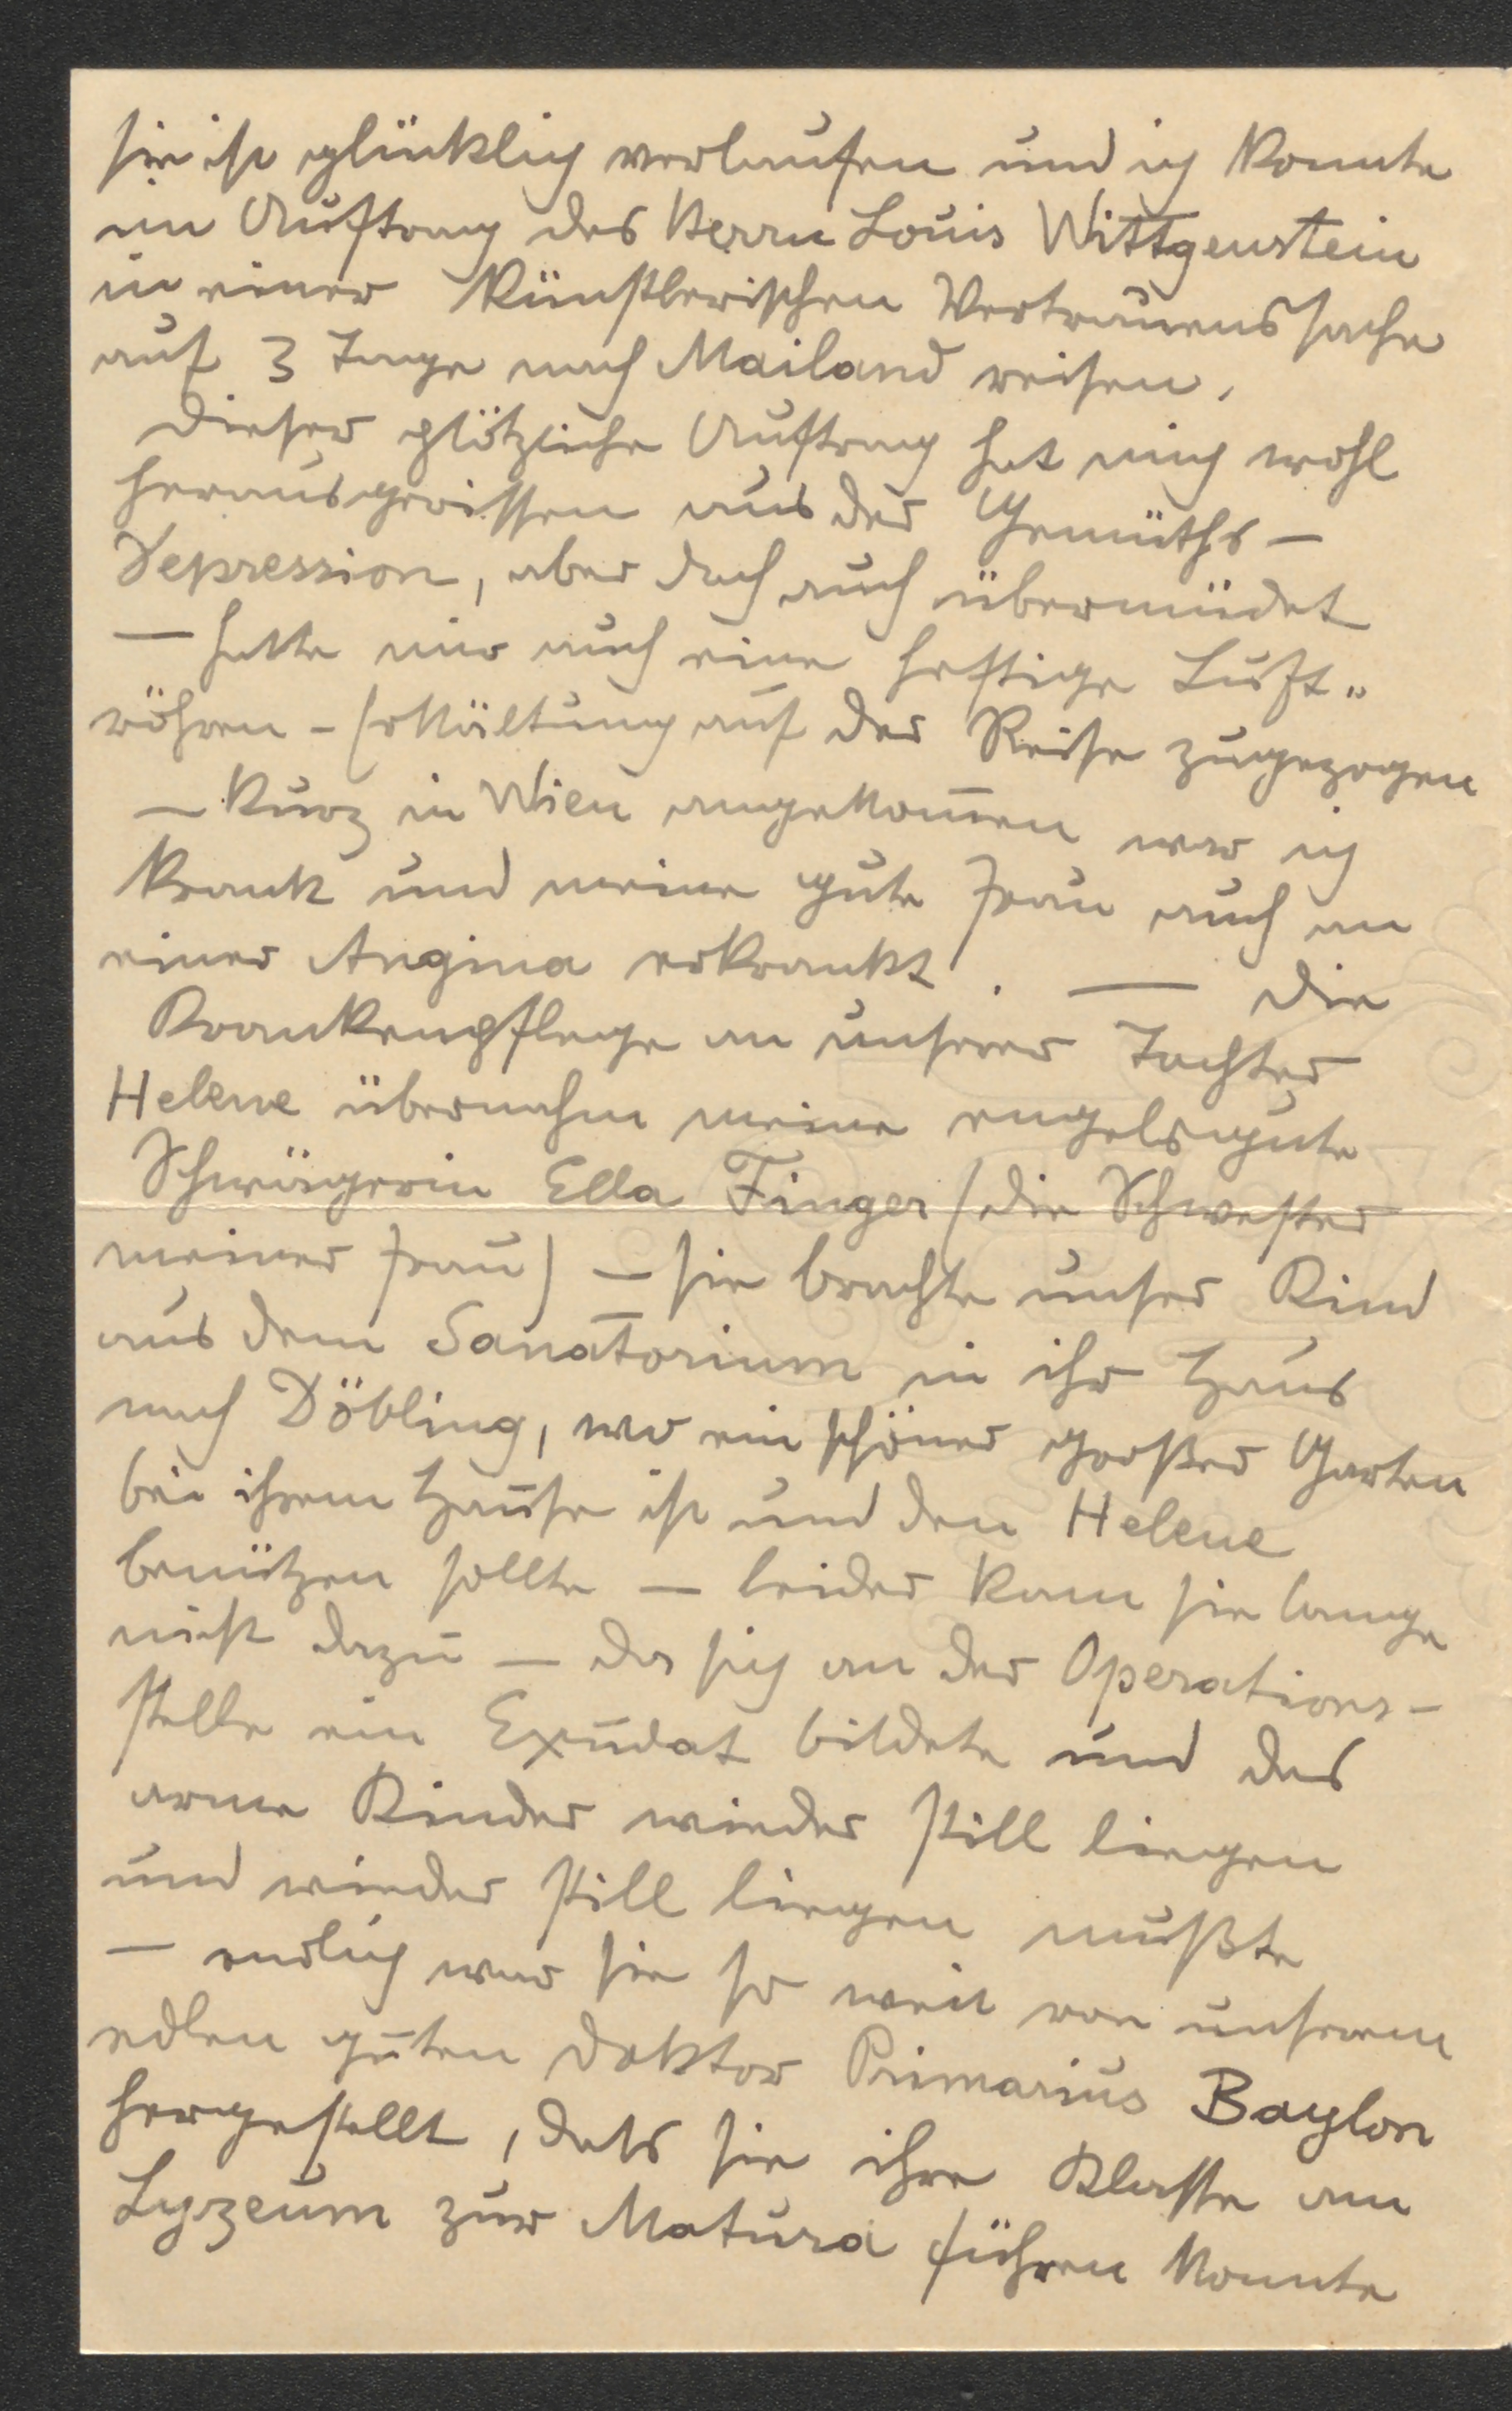 sie ist glücklich verlaufen und ich konnte
im Auftrag des Herrn Louis Wittgenstein
in einer künstlerischen Vertrauenssache
auf 3 Tage nach Mailand reisen.
Dieser plötzliche Auftrag hat mich wohl
herausgerissen aus der Gemüths-
Depression, aber doch auch übermüdet
— hatte mir auch eine heftige Luft„
röhren-Erkältung auf der Reise zugezogen
— kurz in Wien angekom̅en war ich
krank und meine gute Frau auch an
einer Angina erkrankt. — Die
Krankenpflege an unserer Tochter
Helene übernahm meine engelsgute
Schwägerin Ella Finger (die Schwester
meiner Frau) — sie brachte unser Kind
aus dem Sanatorium in ihr Haus
nach Döbling, wo ein schöner großer Garten
bei ihrem Hause ist und den Helene
benützen sollte — leider kam sie lange
nicht dazu — da sich an der Operations-
stelle ein Exudat bildete und das
arme Kinder wieder still liegen
und wieder still liegen mußte
— endlich war sie so weit von unserem
edlen guten Doktor Primarius Baylon
hergestellt, dass sie ihre Klasse am
Lyzeum zur Matura führen konnte